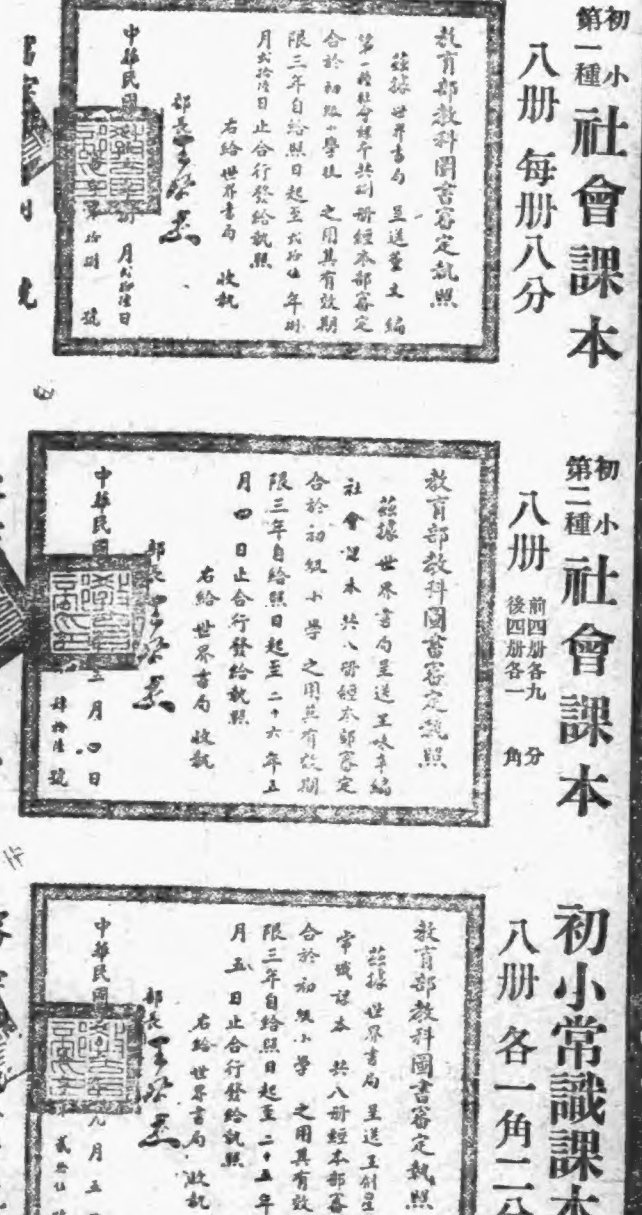 初小
第一種
社會課本
八册 每册八分
教育部教科圖書審定執照
茲據 世界書局 呈送董文 編
第一種社會課本共捌册經本部審定
合於初級小學校 之用其有效期
限三年自給照日起至貳拾伍年捌
月貳拾陸日止合行發給執照
右給世界書局 收執
部長
中華民國
月貳拾陸日
拾捌 號
初小
第二種
社會課本
八册
前四册各九分
後四册各一角
教育部教科圖書審定執照
茲據 世界書局呈送 王味辛編
社會課本 共八册經本部審定
合於初級小學 之用其有效期
限三年自給照日起至二十六年五
月四日止合行發給執照
右給世界書局收執
部長
中華民國
五月四日
肆拾陸號
初小常識課本
八册 各一角二分
教育部教科圖書審定執照
茲據 世界書局 呈送王劍星
常識課本 共八册經本部審
合於初級小學 之用其有效
限三年自給照日起至二十五年
月五日止合行發給執照
右給世界書局 收執
部長
中華民國
九月五
貳拾伍